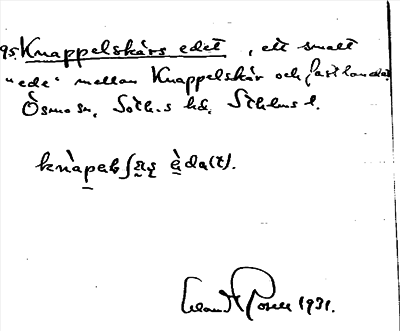 95. Knappelskärs edet, ett smalt
"ede" mellan Knappelskär och fastlandet
Ösmo sn, Söth.s hd, Sthlms l.
knàpelsʃæ̣ṣ èda(t).
1931.